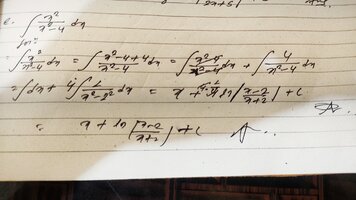 2x+5
e. ∫ x²/(x²-4) dx
Solⁿ:
= ∫ x²/(x²-4) dx = ∫ (x²-4+4)/(x²-4) dx = ∫ (x²-4)/(x²-4) dx + ∫ 4/(x²-4) dx
= ∫ dx + 4∫ 1/(x²-2²) dx = x + ln|(x-2)/(x+2)| + c
= x + ln|(x-2)/(x+2)| + c